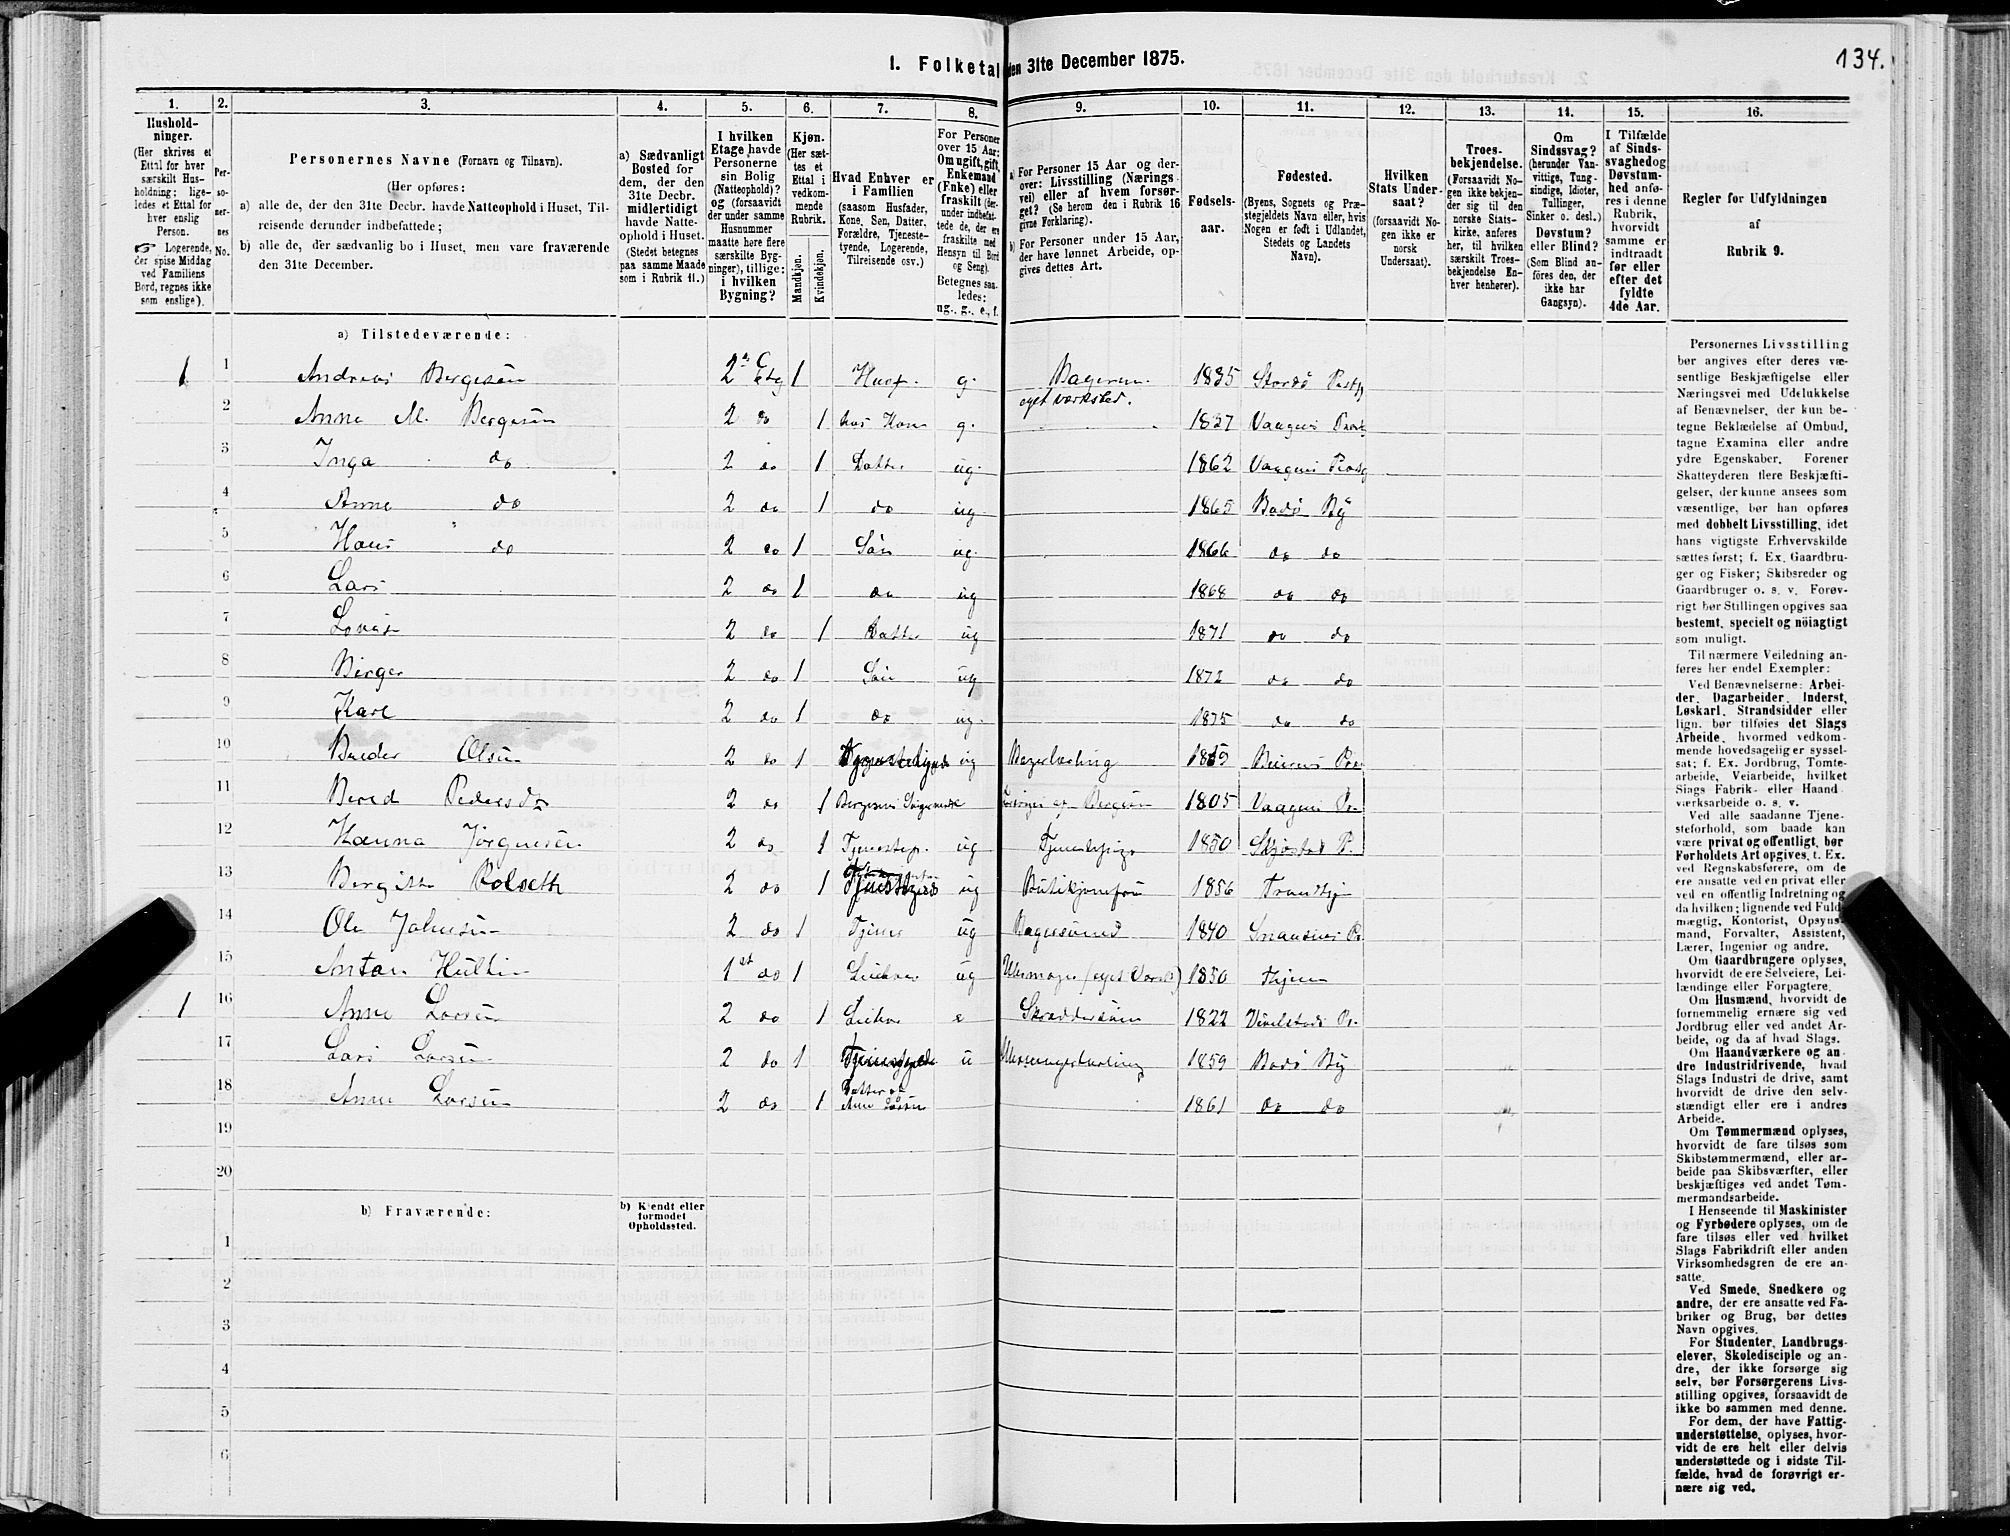 134.
I. Folketal den 31te December 1875.
1. 2. 3. 4. 5. 6. 7. 8. 9. 10. 11. 12. 13. 14. 15. 16.
Hushold-
ninger.
(Her skrives et
Ettal for hver
særskilt Hus-
holdning; lige-
ledes et Ettal for
hver enslig
Person.
☞ Logerende,
der spise Middag
ved Familiens
Bord, regnes ikke
som enslige).
Per-
so-
ner-
nes
No.
Personernes Navne (Fornavn og Tilnavn).
(Her opføres:
a) alle de, der den 31te Decbr. havde Natteophold i Huset, Til-
reisende derunder indbefattede;
b) alle de, der sædvanlig bo i Huset, men vare fraværende
den 31te December.
a) Sædvanligt
Bosted for
dem, der den
31te Decbr.
midlertidigt
havde Natte-
ophold i Huset.
(Stedet betegnes
paa samme Maade
som i Rubrik 11.)
I hvilken
Etage havde
Personerne
sin Bolig
(Natteophold)?
og (forsaavidt
der under samme
Husnummer
maatte høre flere
særskilte Byg-
ninger), tillige:
i hvilken
Bygning?
Kjøn.
(Her sæt-
tes et
Ettal i
vedkom-
mende
Rubrik.
Mandkjøn.
Kvindekjøn.
Hvad Enhver er
i Familien
(saasom Husfader,
Kone, Søn, Datter,
Forældre, Tjeneste-
tyende, Logerende,
Tilreisende osv.)
For Personer
over 15 Aar:
Om ugift, gift,
Enkemand
(Enke) eller
fraskilt (der-
under indbefat-
tede de, der ere
fraskilte med
Hensyn til Bord
og Seng).
Betegnes saa-
ledes:
ug., g., e., f.
a) For Personer 15 Aar og der-
over: Livsstilling (Nærings-
vei) eller af hvem forsør-
get? (Se herom den i Rubrik 16
givne Forklaring).
b) For Personer under 15 Aar,
der have lønnet Arbeide, op-
gives dettes Art.
Fødsels-
aar.
Fødested.
(Byens, Sognets og Præ-
stegjeldets Navn eller, hvis
Nogen er født i Udlandet,
Stedets og Landets
Navn).
Hvilken
Stats Under-
saat?
(forsaavidt No-
gen ikke er
norsk
Undersaat).
Troes-
bekjendelse.
(Forsaavidt No-
gen ikke bekjen-
der sig til den
norske Stats-
kirke, anføres
her, til hvilken
særskilt Troes-
bekjendelse En-
hver henhører).
Om
Sindssvag?
(herunder Van-
vittige, Tung-
sindige, Idioter,
Tullinger,
Sinker o. desl.)
Døvstum?
eller Blind?
(Som Blind an-
føres den, der
ikke har
Gangsyn).
I Tilfælde
af Sinds-
svaghed og
Døvstum-
hed anfø-
res i denne
Rubrik,
hvorvidt
samme er
indtraadt
før eller
efter det
fyldte
4de Aar.
Regler for Udfyldningen
af
Rubrik 9.
a) Tilstedeværende:
1 1 Andreas Bergesen 2 etg 1 Husf. g. Bager m. eget værksted. 1835 Stordö Pr
2 Anne M. Bergesen 2 do 1 hus Kone g. 1837 Vaagens
3 Inga do 2 do 1 Datter ug. 1862 Vaagens
4 Anne do 2 do 1 do ug 1865 Bodö By
5 Hans do 2 do 1 Sön ug. 1866 do do
6 Lars 2 do 1 do ug 1868 do do
7 2 do 1 Datter ug 1871 do do
8 Birger 2 do 1 Sön ug 1872 do do
9 Karl 2 do 1 do ug. 1875 do do
10 Olsen 2 do 1 ug Bagerlærling Pr
11 Pedersd 2 do 1 Bergesens af Bergesen 1805 Vaagens Pr
12 Hanna Jörgensen 2 do 1 ug 1850 P.
13 2 do 1 ug 1856 Trondhj
14 Ole Johnsen 2 do 1 Tjener ug Bagersvend 1840
15 Anton 1st do 1 ug (eget Værkst) 1850
1 16 Anne Larsen 2 do 1 e 1822 Pr.
17 Lars Larsen 2 do 1 u 1859 Bodö By
18 Anne Larsen 2 do 1 Datter af Anne Larsen 1861 do do
19
20
b) Fraværende:
b) Kjendt eller
formodet
Opholdssted.
1
2
3
4
5
6
Personernes Livsstilling
bør angives efter deres væ-
sentlige Beskjæftigelse eller
Næringsvei med Udelukkelse
af Benævnelser, der kun be-
tegne Beklædelse af Ombud,
tagne Examina eller andre
ydre Egenskaber. Forener
Skatteyderen flere Beskjæfti-
gelser, der kunne ansees som
væsentlige, bør han opføres
med dobbelt Livsstilling, idet
hans vigtigste Erhvervskilde
sættes først; f. Ex. Gaardbru-
ger og Fisker; Skibsreder og
Gaardbruger o. s. v. Forøv-
rigt bør Stillingen opgives saa
bestemt, specielt og nöiagtigt
som muligt.
Til nærmere Veiledning an-
føres her endel Exempler:
Ved Benævnelserne: Arbei-
der, Dagarbeider, Inderst,
Løskarl, Strandsidder eller
lign. bør tilføies det Slags
Arbeide, hvormed vedkom-
mende hovedsagelig er syssel-
sat; f. Ex. Jordbrug, Tomte-
arbeide, Veiarbeide, hvilket
Slags Fabrik- eller Haand-
værksarbeide o. s. v.
Ved alle saadanne Tjene-
steforhold, som baade kan
være privat og offentligt, bør
Forholdets Art opgives, t. Ex.
ved Regnskabsførere, om de
ere ansatte ved en privat eller
ved en offentlig Indretning og
da hvilken; lignende ved Fuld-
mægtig, Kontorist, Opsyns-
mand, Forvalter, Assistent,
Lærer, Ingeniør og andre.
Om Gaardbrugere oplyses,
hvorvidt de ere Selveiere, Lei-
lændinge eller Forpagtere.
Om Husmænd, hvorvidt de
fornemmelig ernære sig ved
Jordbrug eller ved andet Ar-
beide, og da af hvad Slags.
Om Haandværkere og an-
dre Industridrivende, hvad
Slags Industri de drive, samt
hvorvidt de drive den selv-
stændigt eller ere i andres
Arbeide.
Om Tømmermænd oplyses,
hvorvidt de fare tilsøs som
Skibstømmermænd, eller ar-
beide paa Skibsværfter, eller
beskjæftiges ved andet Tøm-
mermandsarbeide.
I Henseende til Maskinister
og Fyrbødere oplyses, om de
fare tilsøs eller ved hvilket
Slags Fabrikdrift eller anden
Virksomhedsgren de ere an-
satte.
Ved Smede, Snedkere og
andre, der ere ansatte ved Fa-
briker og Brug, bør dettes
Navn opgives.
For Studenter, Landbrugs-
elever, Skoledisciple og an-
dre, der ikke forsørge sig
selv, bør Forsørgerens Livs-
stilling opgives, forsaavidt de
ikke bo sammen med denne.
For dem, der have Fattig-
understøttelse, oplyses, hvor-
vidt de ere helt eller delvis
understøttede og i sidste Til-
fælde, hvad de forøvrigt er-
nære sig ved.